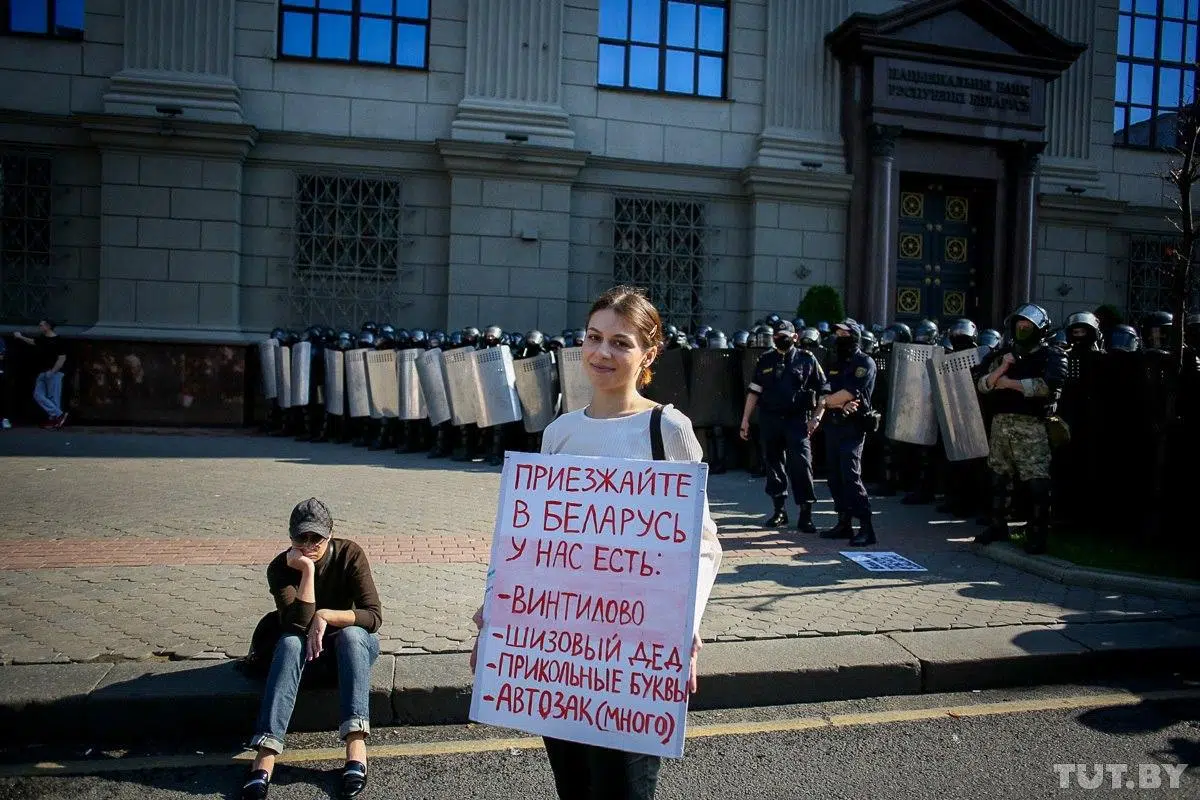 НАЦЫЯНАЛЬНЫ БАНК
РЭСПУБЛІКІ БЕЛАРУСЬ
ПРИЕЗЖАЙТЕ
В БЕЛАРУСЬ
У НАС ЕСТЬ:
-ВИНТИЛОВО
-ШИЗОВЫЙ ДЕД
-ПРИКОЛЬНЫЕ БУКВЫ
-АВТОЗАК(МНОГО)
TUT.BY